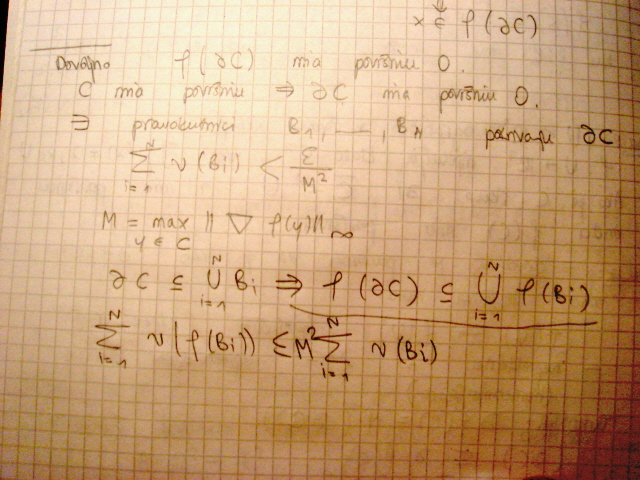 x ∈ φ(∂C)
Dovoljno φ(∂C) ima površinu 0.
C ima površinu ⇒ ∂C ima površinu 0.
∃ pravokutnici B₁, —, B_N pokrivaju ∂C
∑_{i=1}^{N} ν(Bi) < ε/M²
M = max_{y ∈ C} ‖∇φ(y)‖_∞
∂C ⊆ ⋃_{i=1}^{N} Bi ⇒ φ(∂C) ⊆ ⋃_{i=1}^{N} φ(Bi)
∑_{i=1}^{N} ν(φ(Bi)) ≤ M² ∑_{i=1}^{N} ν(Bi)